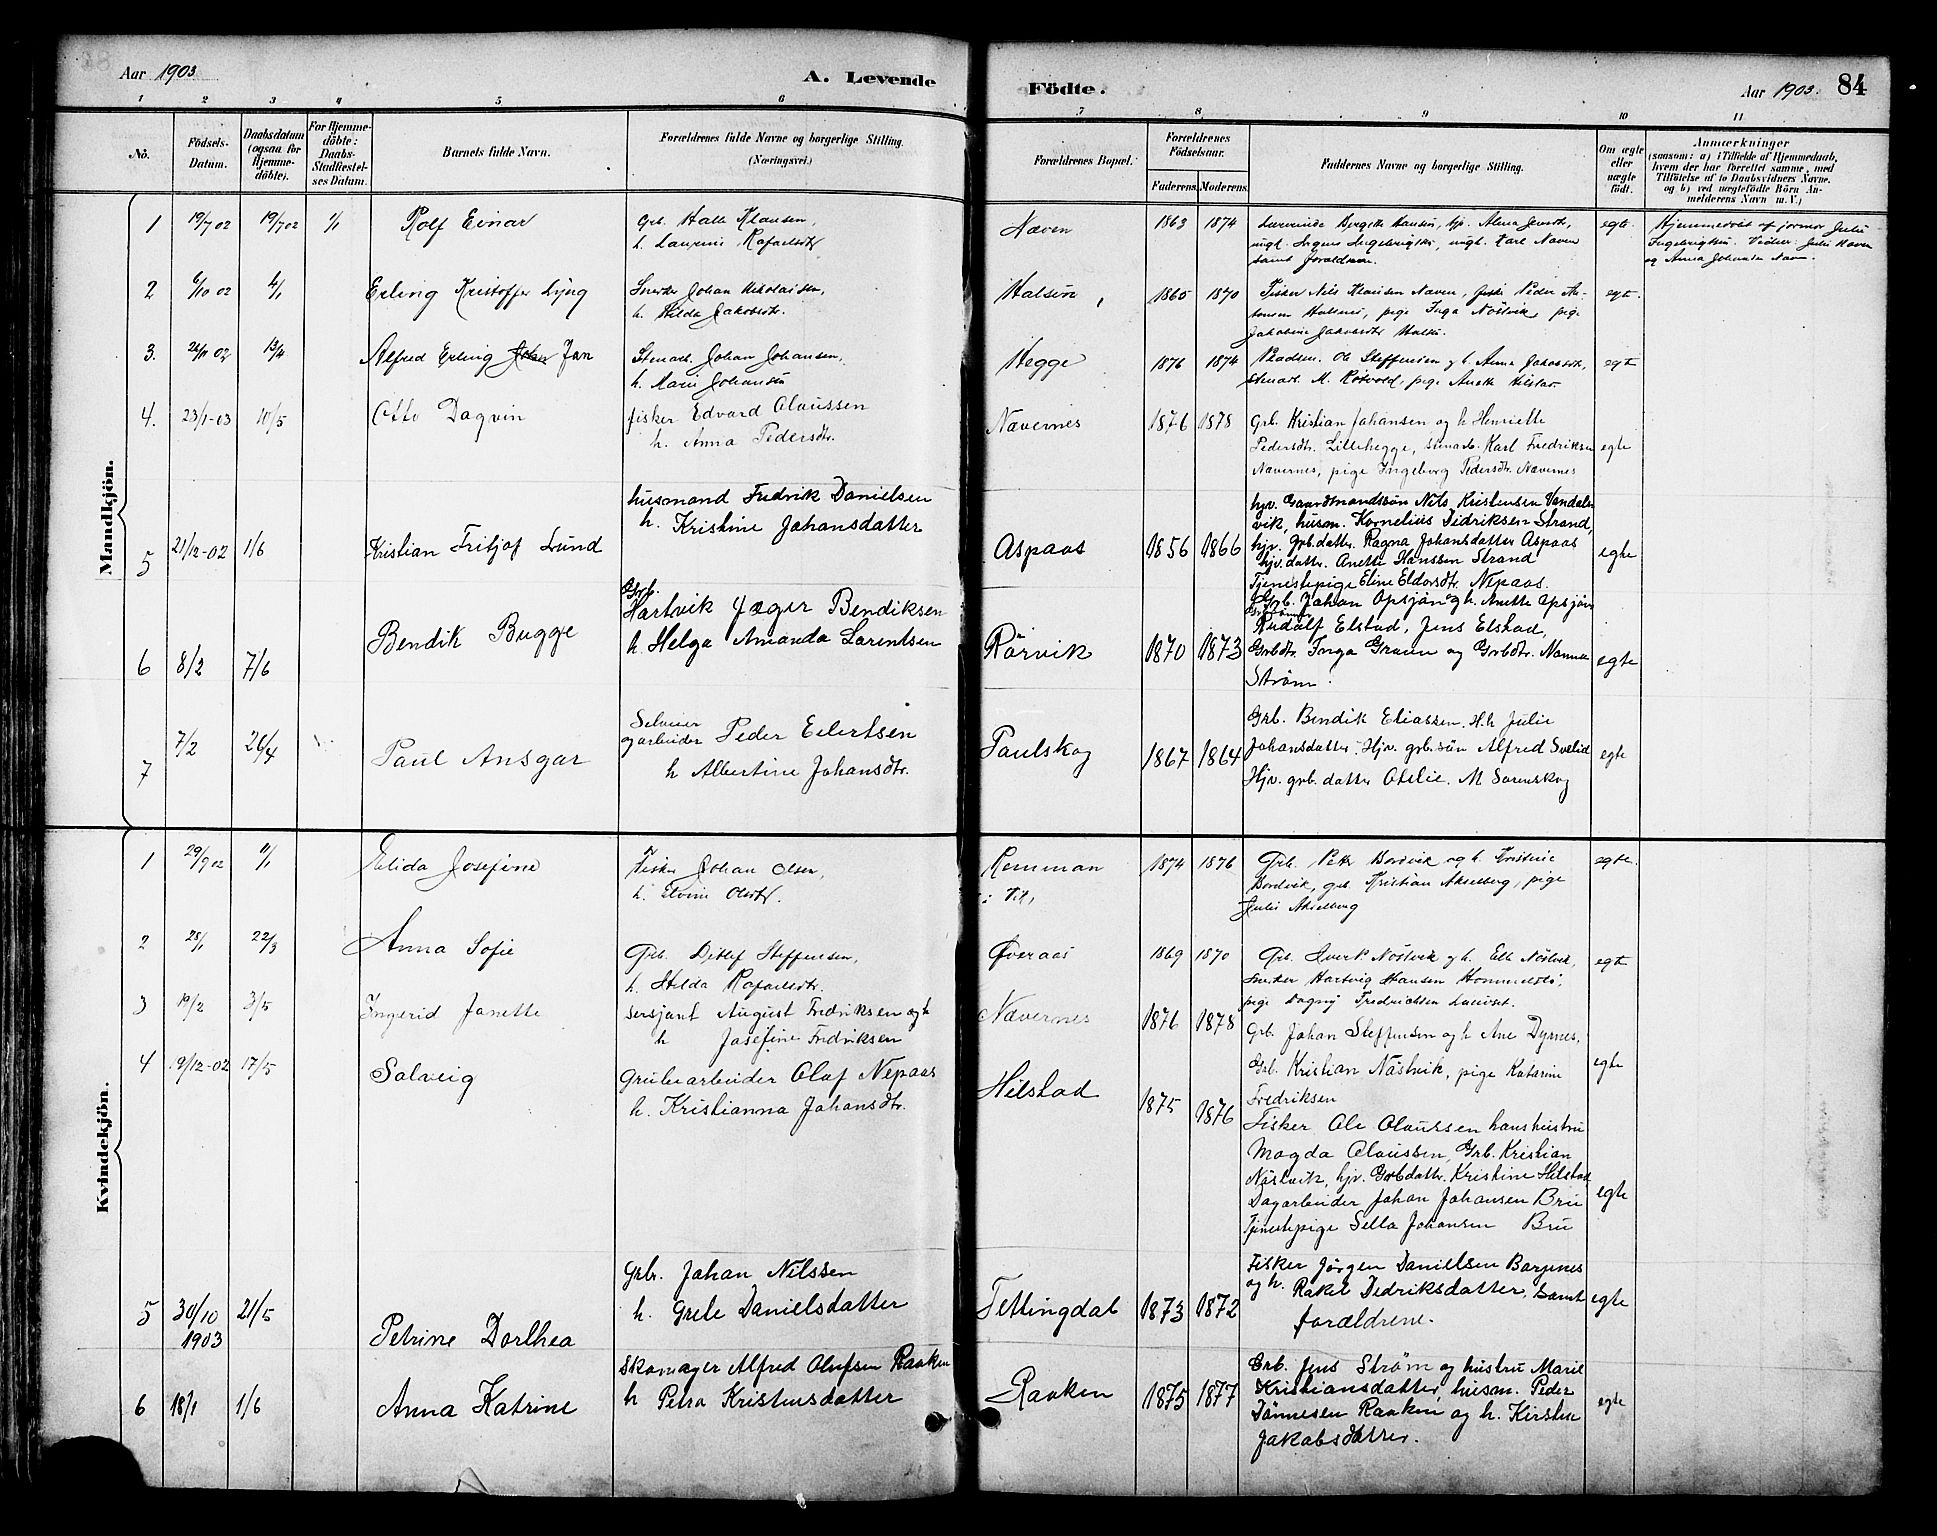 Aar 1903.
A. Levende
Födte.
Aar 1903.
84
1 2 3 4 5 6 7 8 9 10 11
No.
Födsels-Datum.
Daabsdatum (ogsaa for Hjemmedöbte).
For Hjemmedöbte: Daabs-Stadfæstelses Datum.
Barnets fulde Navn.
Forældrenes fulde Navne og borgerlige Stilling.
(Næringsvei.)
Forældrenes Bopæl.
Forældrenes Födselsaar.
Faderens. Moderens.
Faddernes Navne og borgerlige Stilling.
Om ægte eller uægte födt.
Anmærkninger
(saasom: a) i Tilfælde af Hjemmedaab,
hvem der har forrettet samme, med
Tilföielse af to Daabsvidners Navne,
og b) ved uægtefödte Börn Anmelderens Navn m. V.)
Mandkjön.
1 19/7 02 19/7 02 1/1 Rolf Einar
Grb. Halle Klausen,
h. Laurine Rafaelsdtr
Næven 1863 1874
samt forældrene.
egte.
Hjemmedøbt af jormor Julie
Ingebrigtsen. Vidner: Julie Næven
og Anna Johansen Næven
2 6/10 02 4/1 Erling Kristoffer Lyng
Snerker Johan Nikolaisen,
h. Hilda Jakobsdtr.
Halsen, 1865 1870
Fisker Nils Klausen Næven, fisker Peder An-
tonsen Halsnes, pige Inga Nöstvik, pige
Jakobine Jakobsdtr Halsen.
egt.
3. 24/11 02 13/4 Alfred Erling Johan Jan
Stenarb. Johan Johansen,
h. Marie Johansen
Hegge 1876 1874
Pladsm. Ole Steffensen og h. Anna Jakobsdtr,
stenarb. M. Røtvold, pige Anette Hilstad
egte
4. 23/1-03 10/5 Otto Dagvin
fisker Edvard Olaussen
h. Anna Pedersdtr.
Nævernes 1876 1878
Grb. Kristian Johansen og h Henriette
Pedersdtr. Lillehegge, stenarb. Karl Fredriksen
Nævernes, pige Ingeborg Pedersdtr. Nævernes
egte
5 21/12-02 1/6 Kristian Fritjof Lund
husmand Fredrik Danielsen
h. Kristine Johansdatter
Aspaas 1856 1866
hjv. Gaardmandssön Nils Kristensen Vandals-
vik, husm. Kornelius Didriksen Strand,
hjv. Grb.datter. Ragna Johansdatter Aspaas
hjv. datter. Anette Hanssen Strand
Tjenestepige Eline Eldorsdtr. Nepaas.
egte
6 8/2 7/6 Bendik Bugge
Grb.
Hartvik Jæger Bendiksen
h. Helga Amanda Lorentsen
Rörvik 1870 1873
Grb. Johan Opsjön og h. Anette Opsjön
Rudolf Elstad, Jens Elstad,
Grbdtr. Inga Graun og Grbdtr. Nanna
Ström.
egte
7 7/2 26/4 Paul Ansgar
Selveier
og arbeider Peder Eilertsen
h Albertine Johansdtr.
Paulskog 1867 1864
Grb. Bendik Eliassen. H.h Julie
Johansdatter. Hjv. grb.sön Alfred Svelid
Hjv. grb. datter Otelie. M Sörenskog
egte
Kvindekjön.
1 29/9 02 1/1 Elida Josefine
Fisker Johan Olsen,
h. Elvine Olsdtr.
Remman
i Vik, 1874 1876
Grb. Peter Bordvik og h. Kristine
Bordvik, grb. Kristian Akselberg, pige
Julie Akselberg
egte.
2 25/1 22/3 Anna Sofie
Grb. Detlef Steffensen,
h. Hilda Rafaelsdtr.
Överaas 1869 1870
Grb. Sivert P. Nöstvik og h. Elb Nöstvik,
snerker Hartvig Hansen Hommelstö,
pige Dagny Fredrichsen
egt
3 19/2 3/5 Ingerid Janette
sersjant August Fredriksen og h
h Josefine Fredriksen
Nævernes 1876 1878
Grb. Johan Steffensen og h Ane Dyrnes,
Grb. Kristian Nästvik, pige Katarine
Fredriksen
egte
4 19/12-02 17/5 Solveig
Grubearbeider Olaf Nepaas
h. Kristianna Johansdtr.
Hilstad 1875 1876
Fisker Ole Olaussen hans hustru
Magda Olaussen, Grb. Kristian
Nästvik, hjv. Grbdatter. Kristine Hilstad
Dagarbeider Johan Johansen Bru
Tjenestepige Sella Johansen Bru
egte
5 30/10 1903 21/5 Petrine Dorthea
Grbr. Johan Nilssen
h. Grete Danielsdatter
Tettingdal 1873 1872
Fisker Jörgen Danielsen Barsnes
og h. Rakel Didriksdatter, samt
forældrene.
egte
6 18/1 1/6 Anna Katrine
Skomager Alfred Olufsen Raaken
h Petra Kristensdatter
Raaken 1875 1877
Grb. Jens Ström og hustru Marie
Kristiansdatter, husm. Peder
Tönnesen Raaken og h. Kirstine
Jakobsdatter.
egte